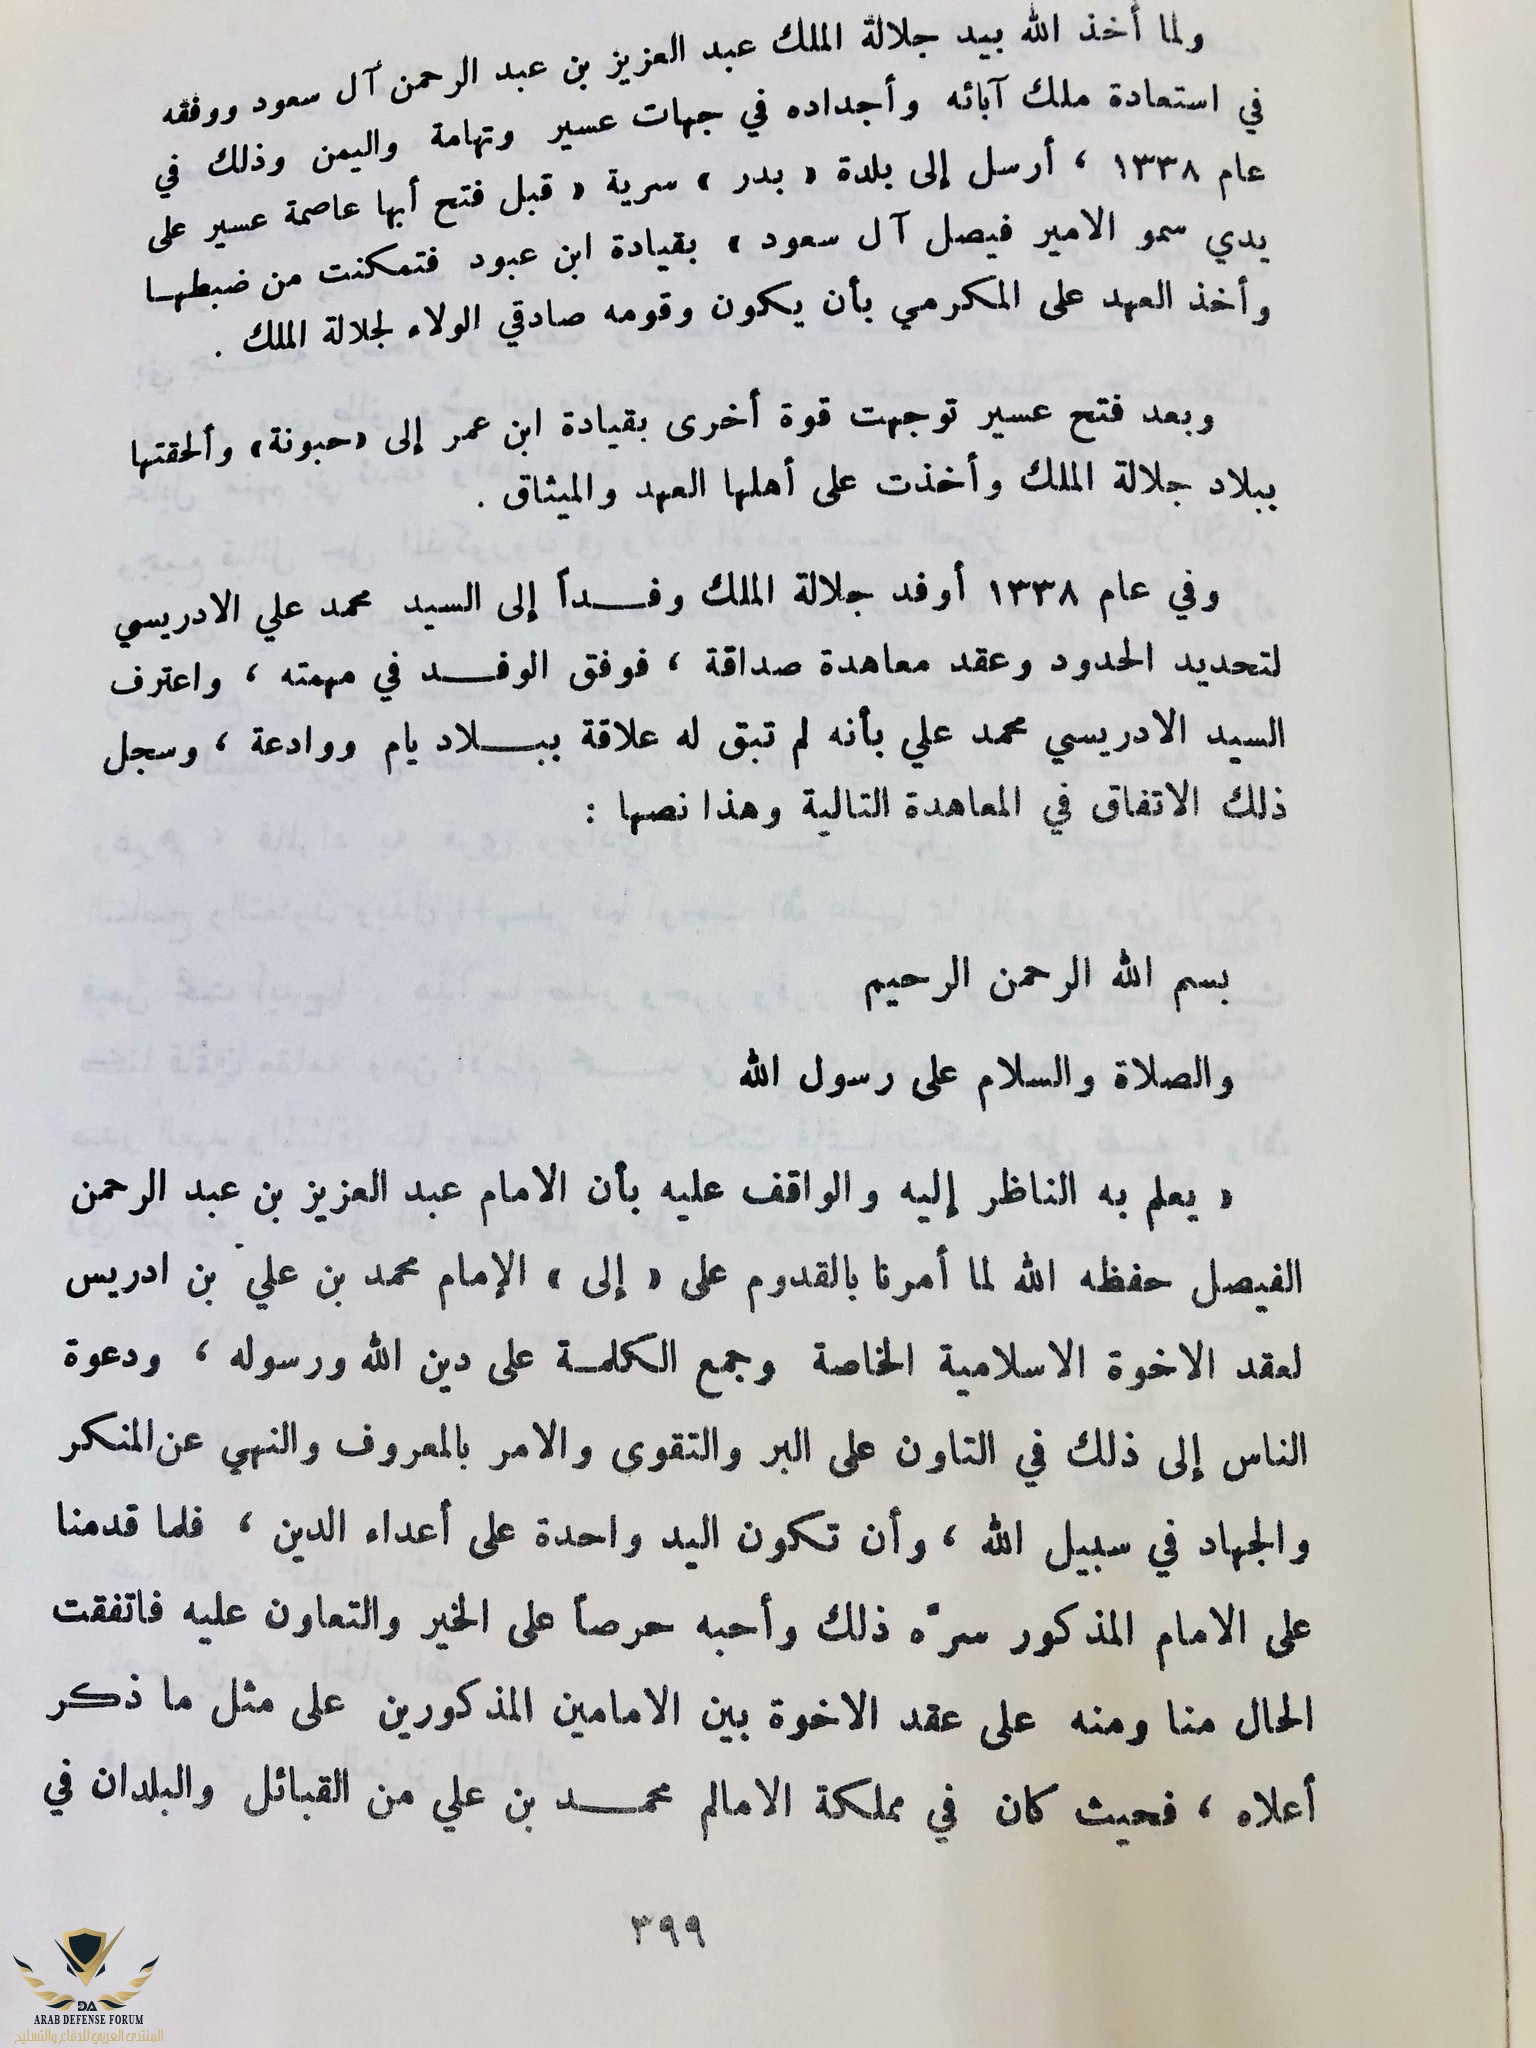 ولما أخذ الله بيد جلالة الملك عبد العزيز بن عبد الرحمن آل سعود ووفقه
في استعادة ملك آبائه وأجداده في جهات عسير وتهامة واليمن وذلك في
عام ١٣٣٨ ، أرسل إلى بلدة « بدر » سرية « قبل فتح أبها عاصمة عسير على
يدي سمو الامير فيصل آل سعود » بقيادة ابن عبود فتمكنت من ضبطهـا
وأخذ العهد على المكرمي بأن يكون وقومه صادقي الولاء لجلالة الملك .
وبعد فتح عسير توجهت قوة أخرى بقيادة ابن عمر إلى «حبونة» وألحقتها
ببلاد جلالة الملك وأخذت على أهلها العهد والميثاق .
وفي عام ١٣٣٨ أوفد جلالة الملك وفـــداً إلى السيد محمد علي الادريسي
لتحديد الحدود وعقد معاهدة صداقة ، فوفق الوفـــد في مهمته ، واعترف
السيد الادريسي محمد علي بأنه لم تبق له علاقة ببـــلاد يام ووادعة ، وسجل
ذلك الاتفاق في المعاهدة التالية وهذا نصها :
بسم الله الرحمن الرحيم
والصلاة والسلام على رسول الله
« يعلم به الناظر إليه والواقف عليه بأن الامام عبد العزيز بن عبد الرحمن
الفيصل حفظه الله لما أمرنا بالقدوم على « إلى » الإمام محمد بن علي بن ادريس
لعقد الاخوة الاسلامية الخاصة وجمع الكلمـة على دين الله ورسوله ، ودعوة
الناس إلى ذلك في التاون على البر والتقوى والامر بالمعروف والنهي عن المنكر
والجهاد في سبيل الله ، وأن تكون اليد واحدة على أعداء الدين ، فلما قدمنا
على الامام المذكور سرّه ذلك وأحبه حرصاً على الخير والتعاون عليه فاتفقت
الحال منا ومنه على عقد الاخوة بين الامامين المذكورين على مثل ما ذكر
أعلاه ، فحيث كان في مملكة الامالم محمـــد بن علي من القبائل والبلدان في
٣٩٩
DA
ARAB DEFENSE FORUM
المنتدى العربي للدفاع والتسليح